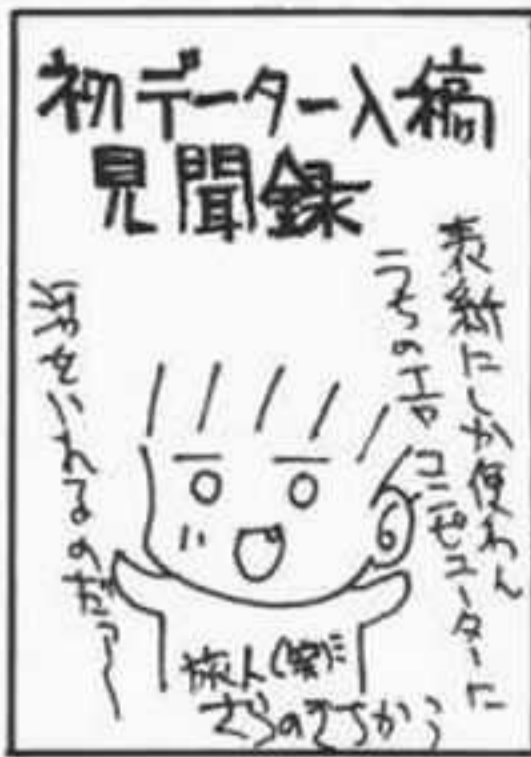 初データー入稿
見聞録
表紙にしか使わん
うちのエロコンピューターに
活をいれるのだァ〜
旅人(笑)